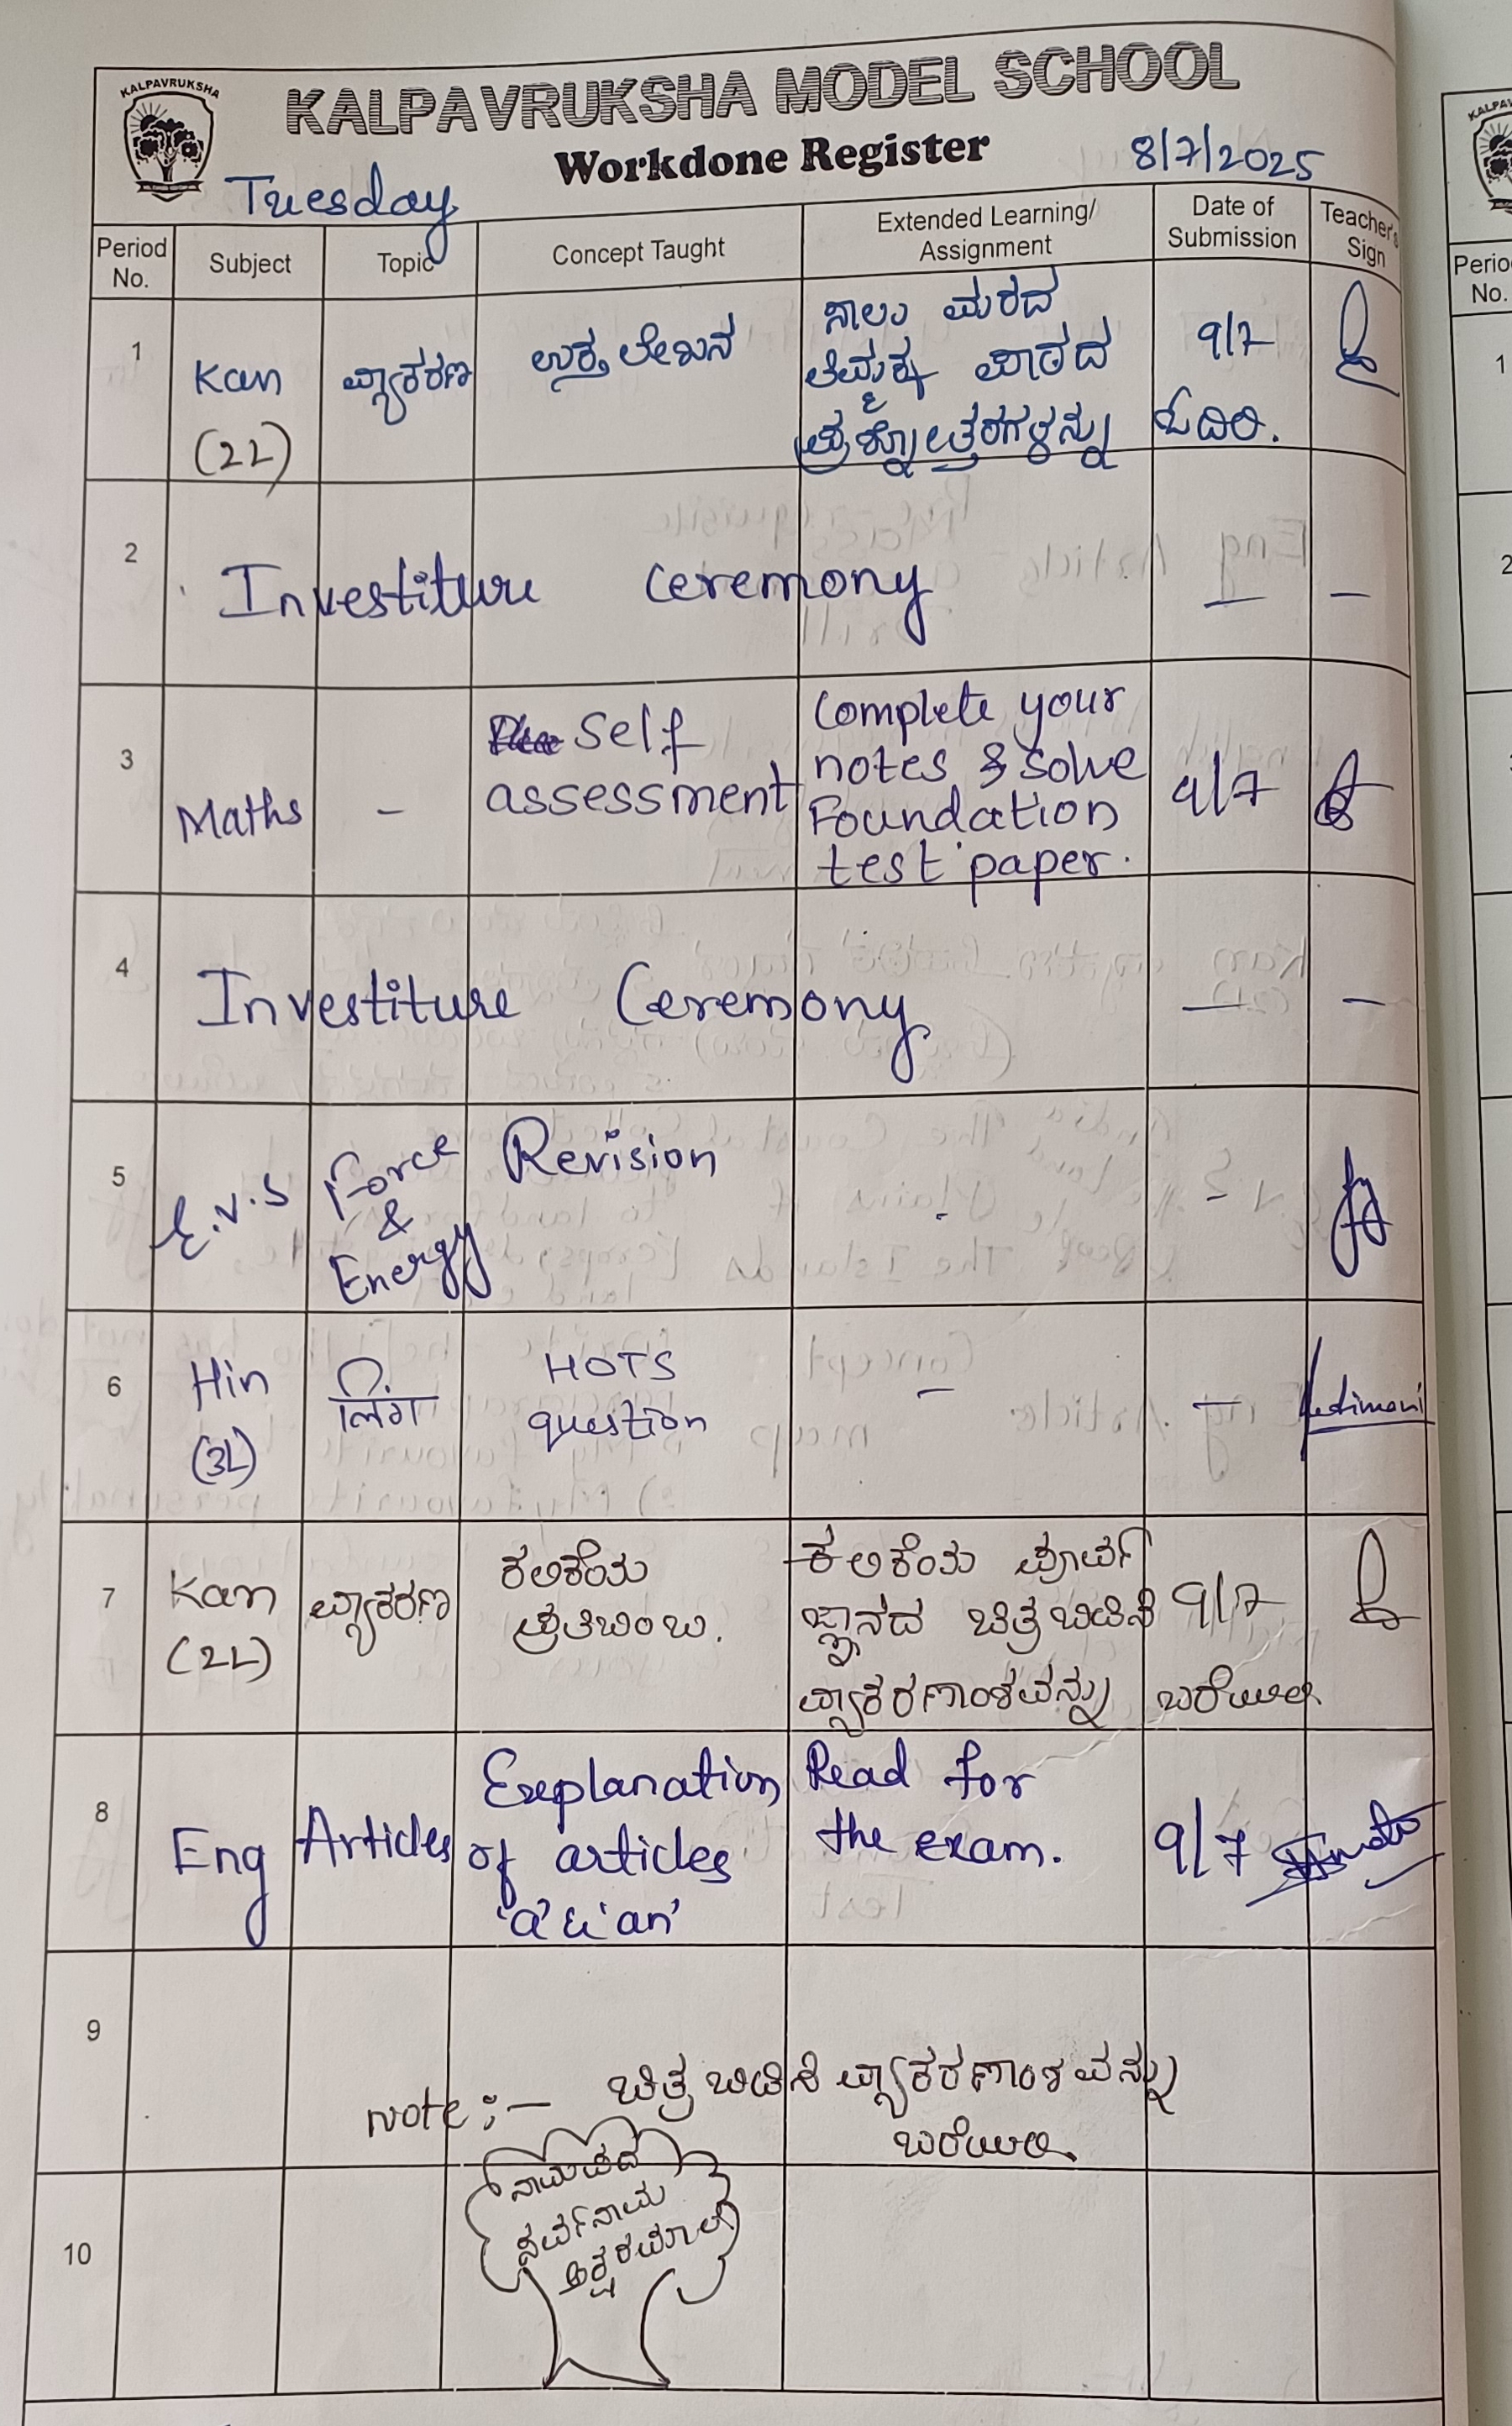 KALPAVRUKSHA
KALPAVRUKSHA MODEL SCHOOL
Workdone Register
Tuesday
8/7/2025
Period No. Subject Topic Concept Taught Extended Learning/ Assignment Date of Submission Teacher's Sign
1 Kan (2L) ವ್ಯಾಕರಣ ಉಕ್ತ ಲೇಖನ
ಸಾಲು ಮರದ
ತಿಮ್ಮಕ್ಕ ಪಾಠದ 9/7
ಪ್ರಶ್ನೋತ್ತರಗಳನ್ನು ಓದಿರಿ.
2 Investiture Ceremony — –
3 Maths – Self
assessment
Complete your
notes & solve
Foundation
test paper.
9/7
4 Investiture Ceremony — –
5 E.V.S Force
&
Energy
Revision
6 Hin
(3L)
लिंग
HOTS
question
– –
7 Kan
(2L)
ವ್ಯಾಕರಣ
ಕಲಿಕೆಯ
ಪ್ರತಿಬಿಂಬ.
ಕಲಿಕೆಯ ಪೂರ್ವ
ಜ್ಞಾನದ ಚಿತ್ರ ಬಿಡಿಸಿ 9/7
ವ್ಯಾಕರಣಾಂಶವನ್ನು ಬರೆಯಿರಿ
8 Eng Articles
Explanation
of articles
'a' & 'an'
Read for
the exam.
9/7
9
note :– ಚಿತ್ರ ಬಿಡಿಸಿ ವ್ಯಾಕರಣಾಂಶವನ್ನು
ಬರೆಯಿರಿ.
10
ನಾಮಪದ
ಸರ್ವನಾಮ
ಅಕ್ಷರಮಾಲೆ
Period No.
1
2